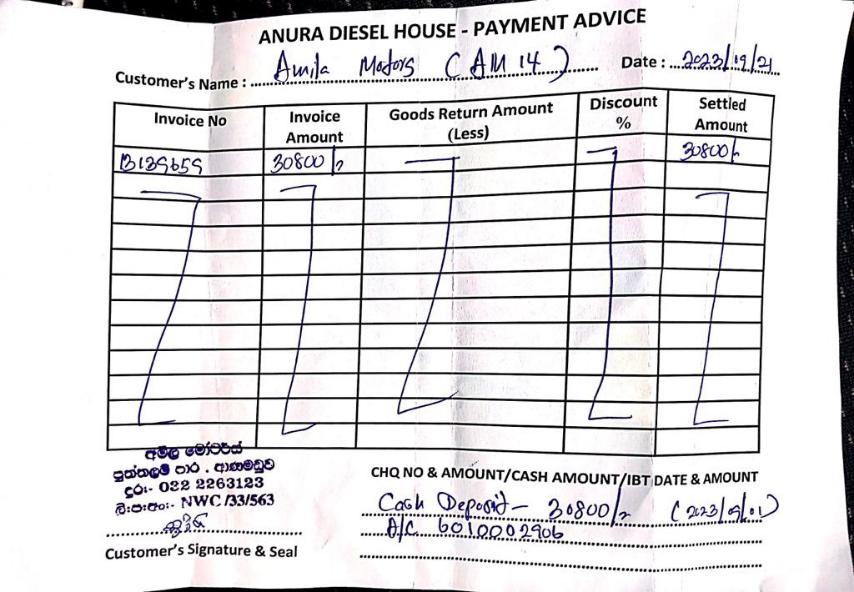 ANURA DIESEL HOUSE - PAYMENT ADVICE
Customer's Name : Amila Motors (AM 14) Date : 2023/19/21
Invoice No Invoice Amount Goods Return Amount (Less) Discount % Settled Amount
B139659 30800/= 30800/=
අමිල මෝටර්ස්
පුත්තලම් පාර . ආණමඩුව
දුරු:- 032 2263123
බී:ප:අං:- NWC /33/563
Customer's Signature & Seal
CHQ NO & AMOUNT/CASH AMOUNT/IBT DATE & AMOUNT
Cash Deposit - 30800/= (2023/09/01)
A/C 6010002906